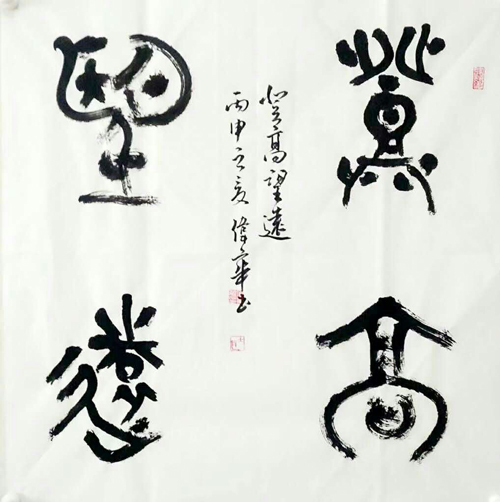 登高
望遠
登高望遠
丙申之夏 偉華書